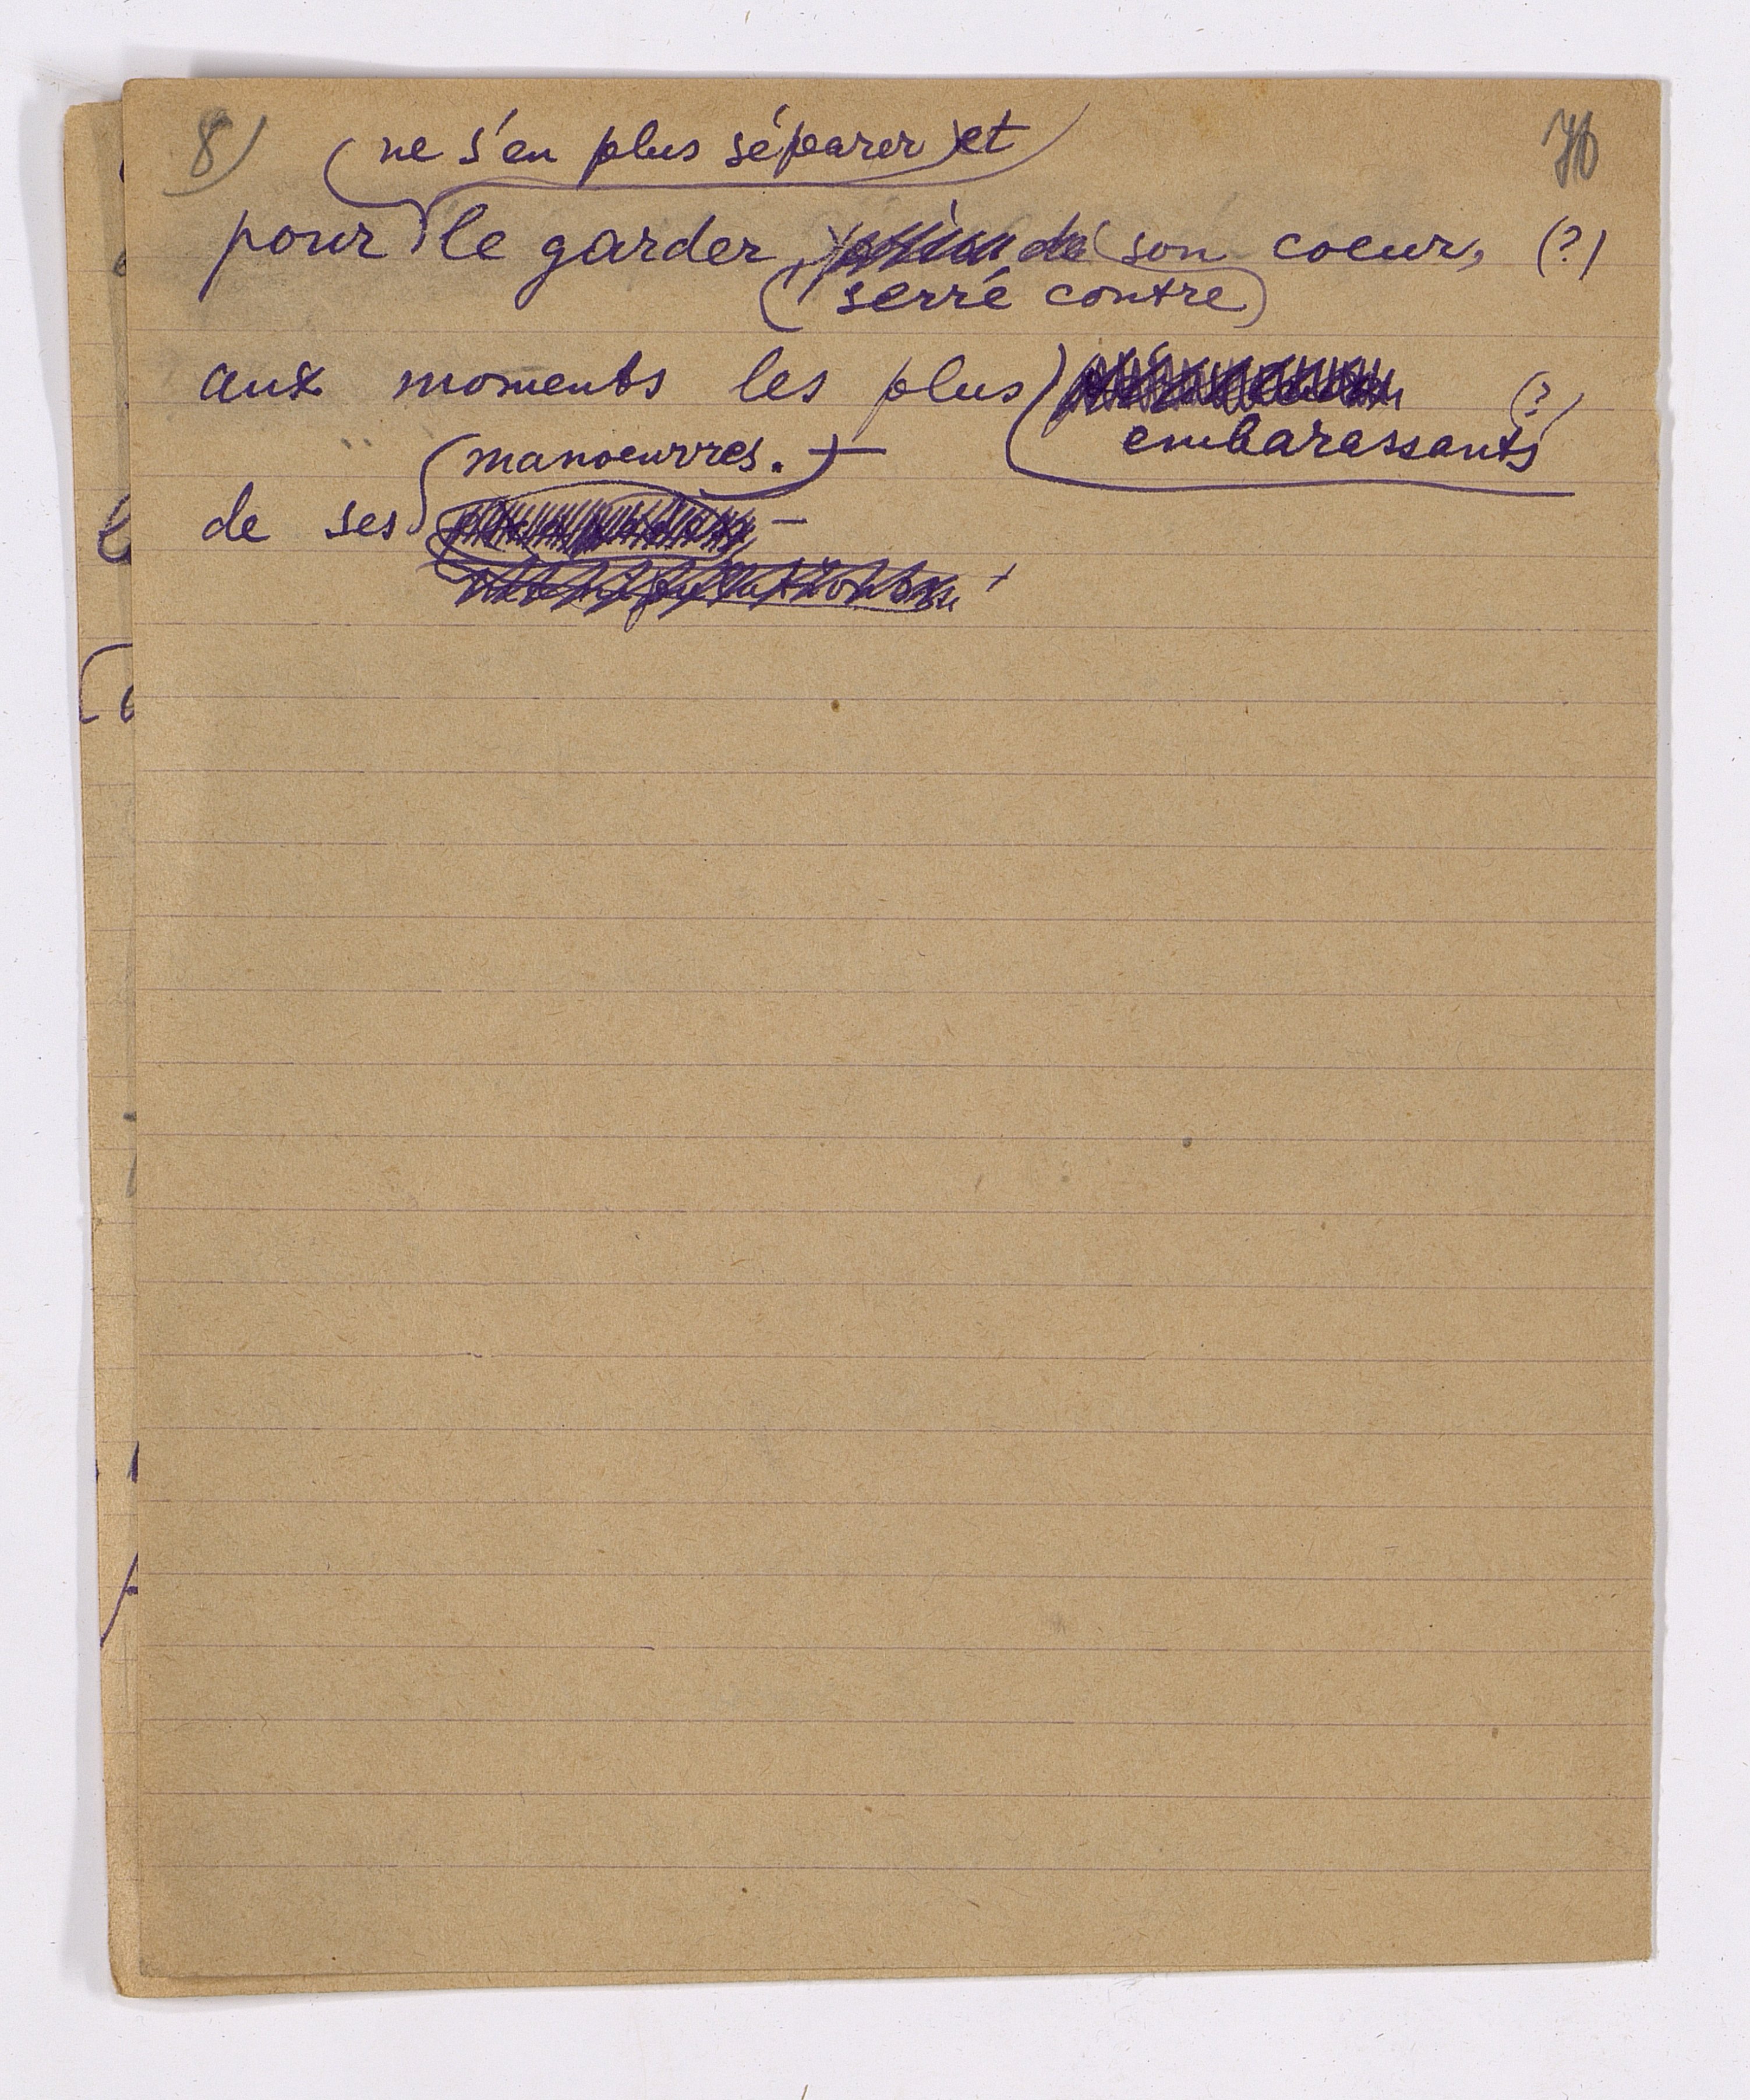 8) (ne s'en plus séparer) et 70
pour le garder, de son coeur, (?)
(serré contre)
aux moments les plus (?)
embarassants
(manoeuvres.)
de ses